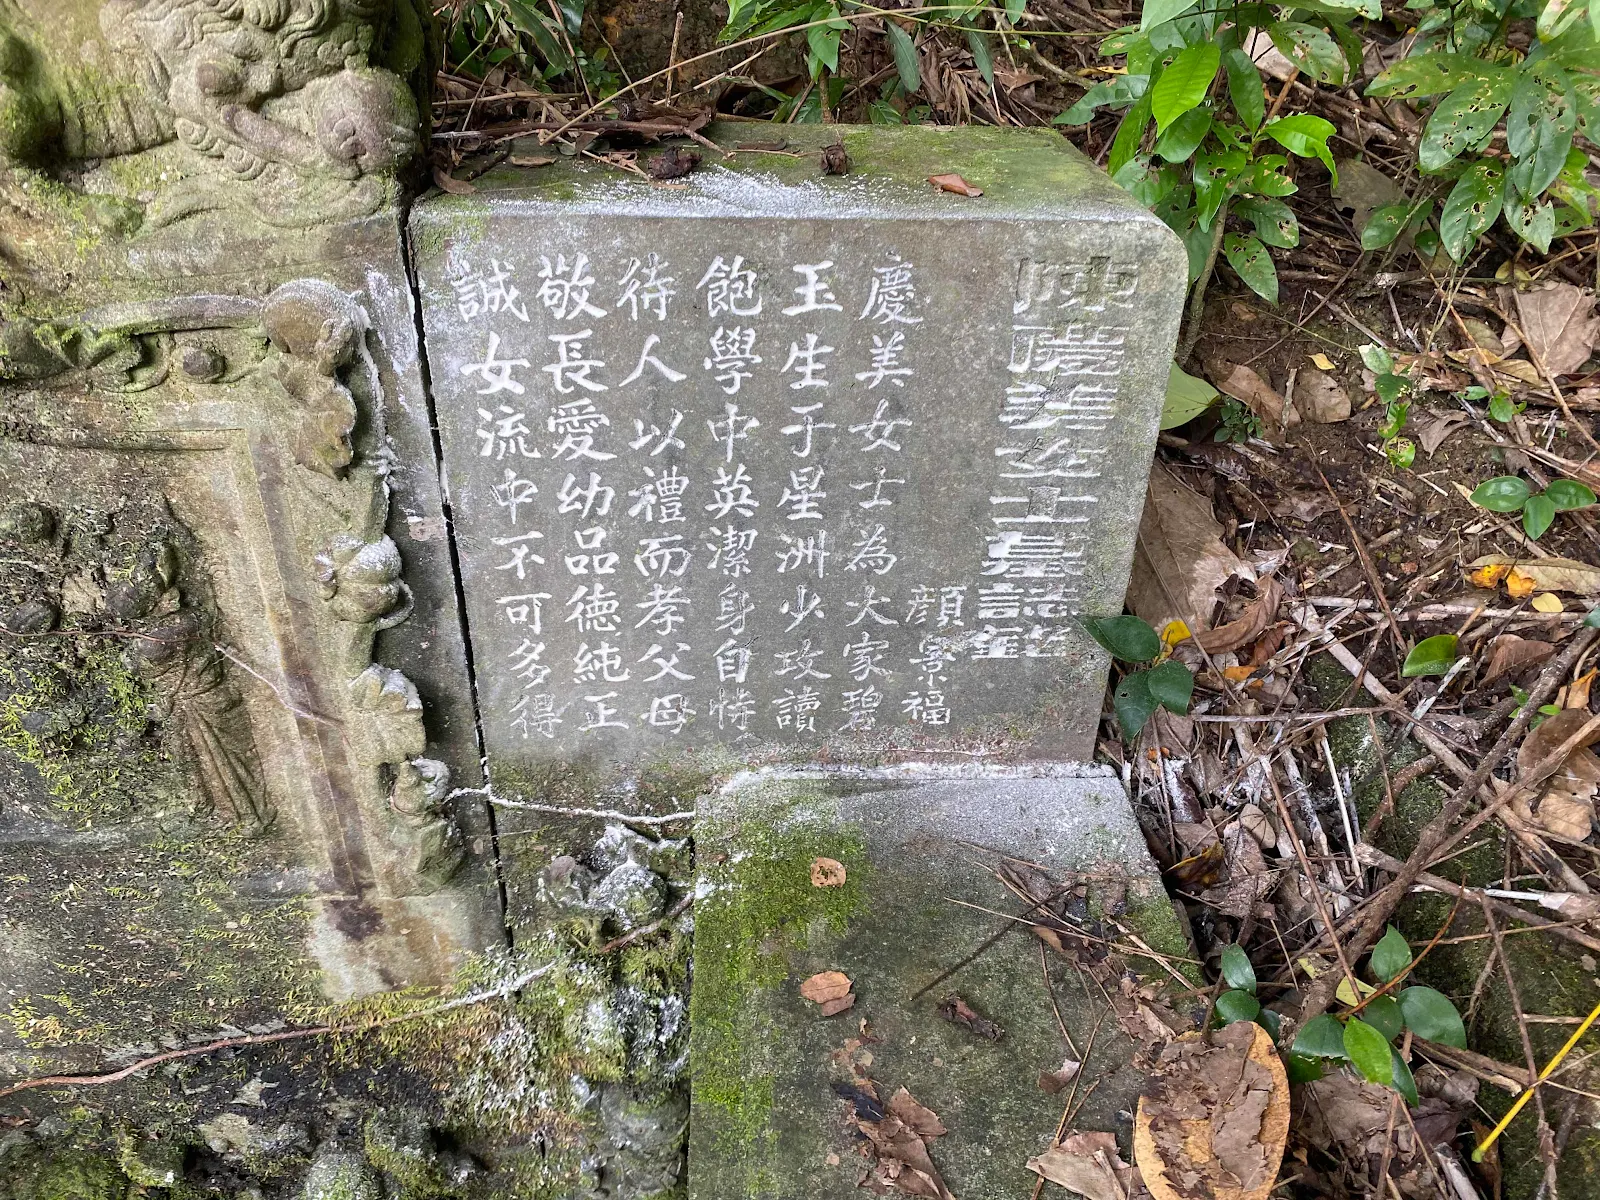 陳慶美女士墓誌銘
顏景福
慶美女士為大家碧
玉生于星洲少攻讀
飽學中英潔身自恃
待人以禮而孝父母
敬長愛幼品德純正
誠女流中不可多得